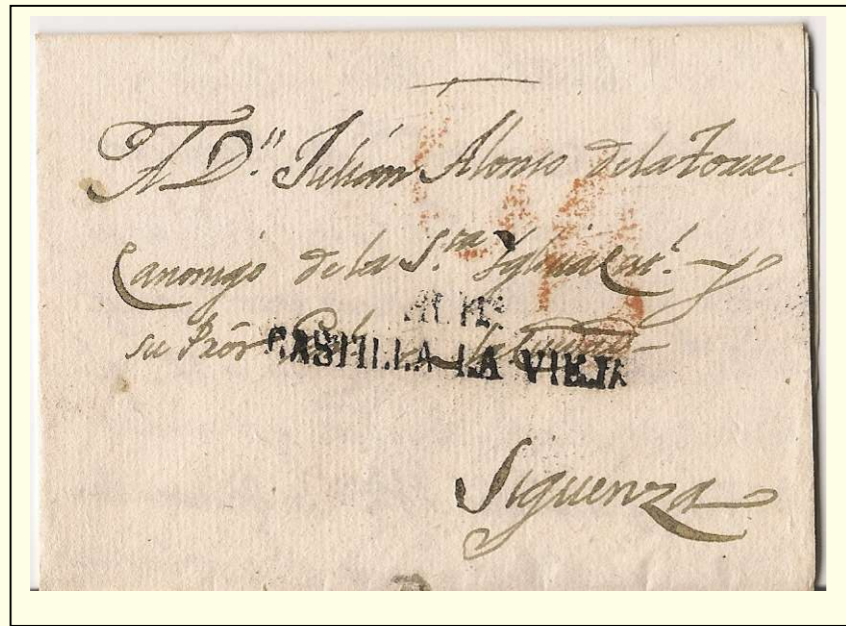 A D.n Julián Alonso de la Torre
Canonigo de la S.ta Yglesia Cat.l y
su Prov.
CASTILLA LA VIEJA
Siguenza